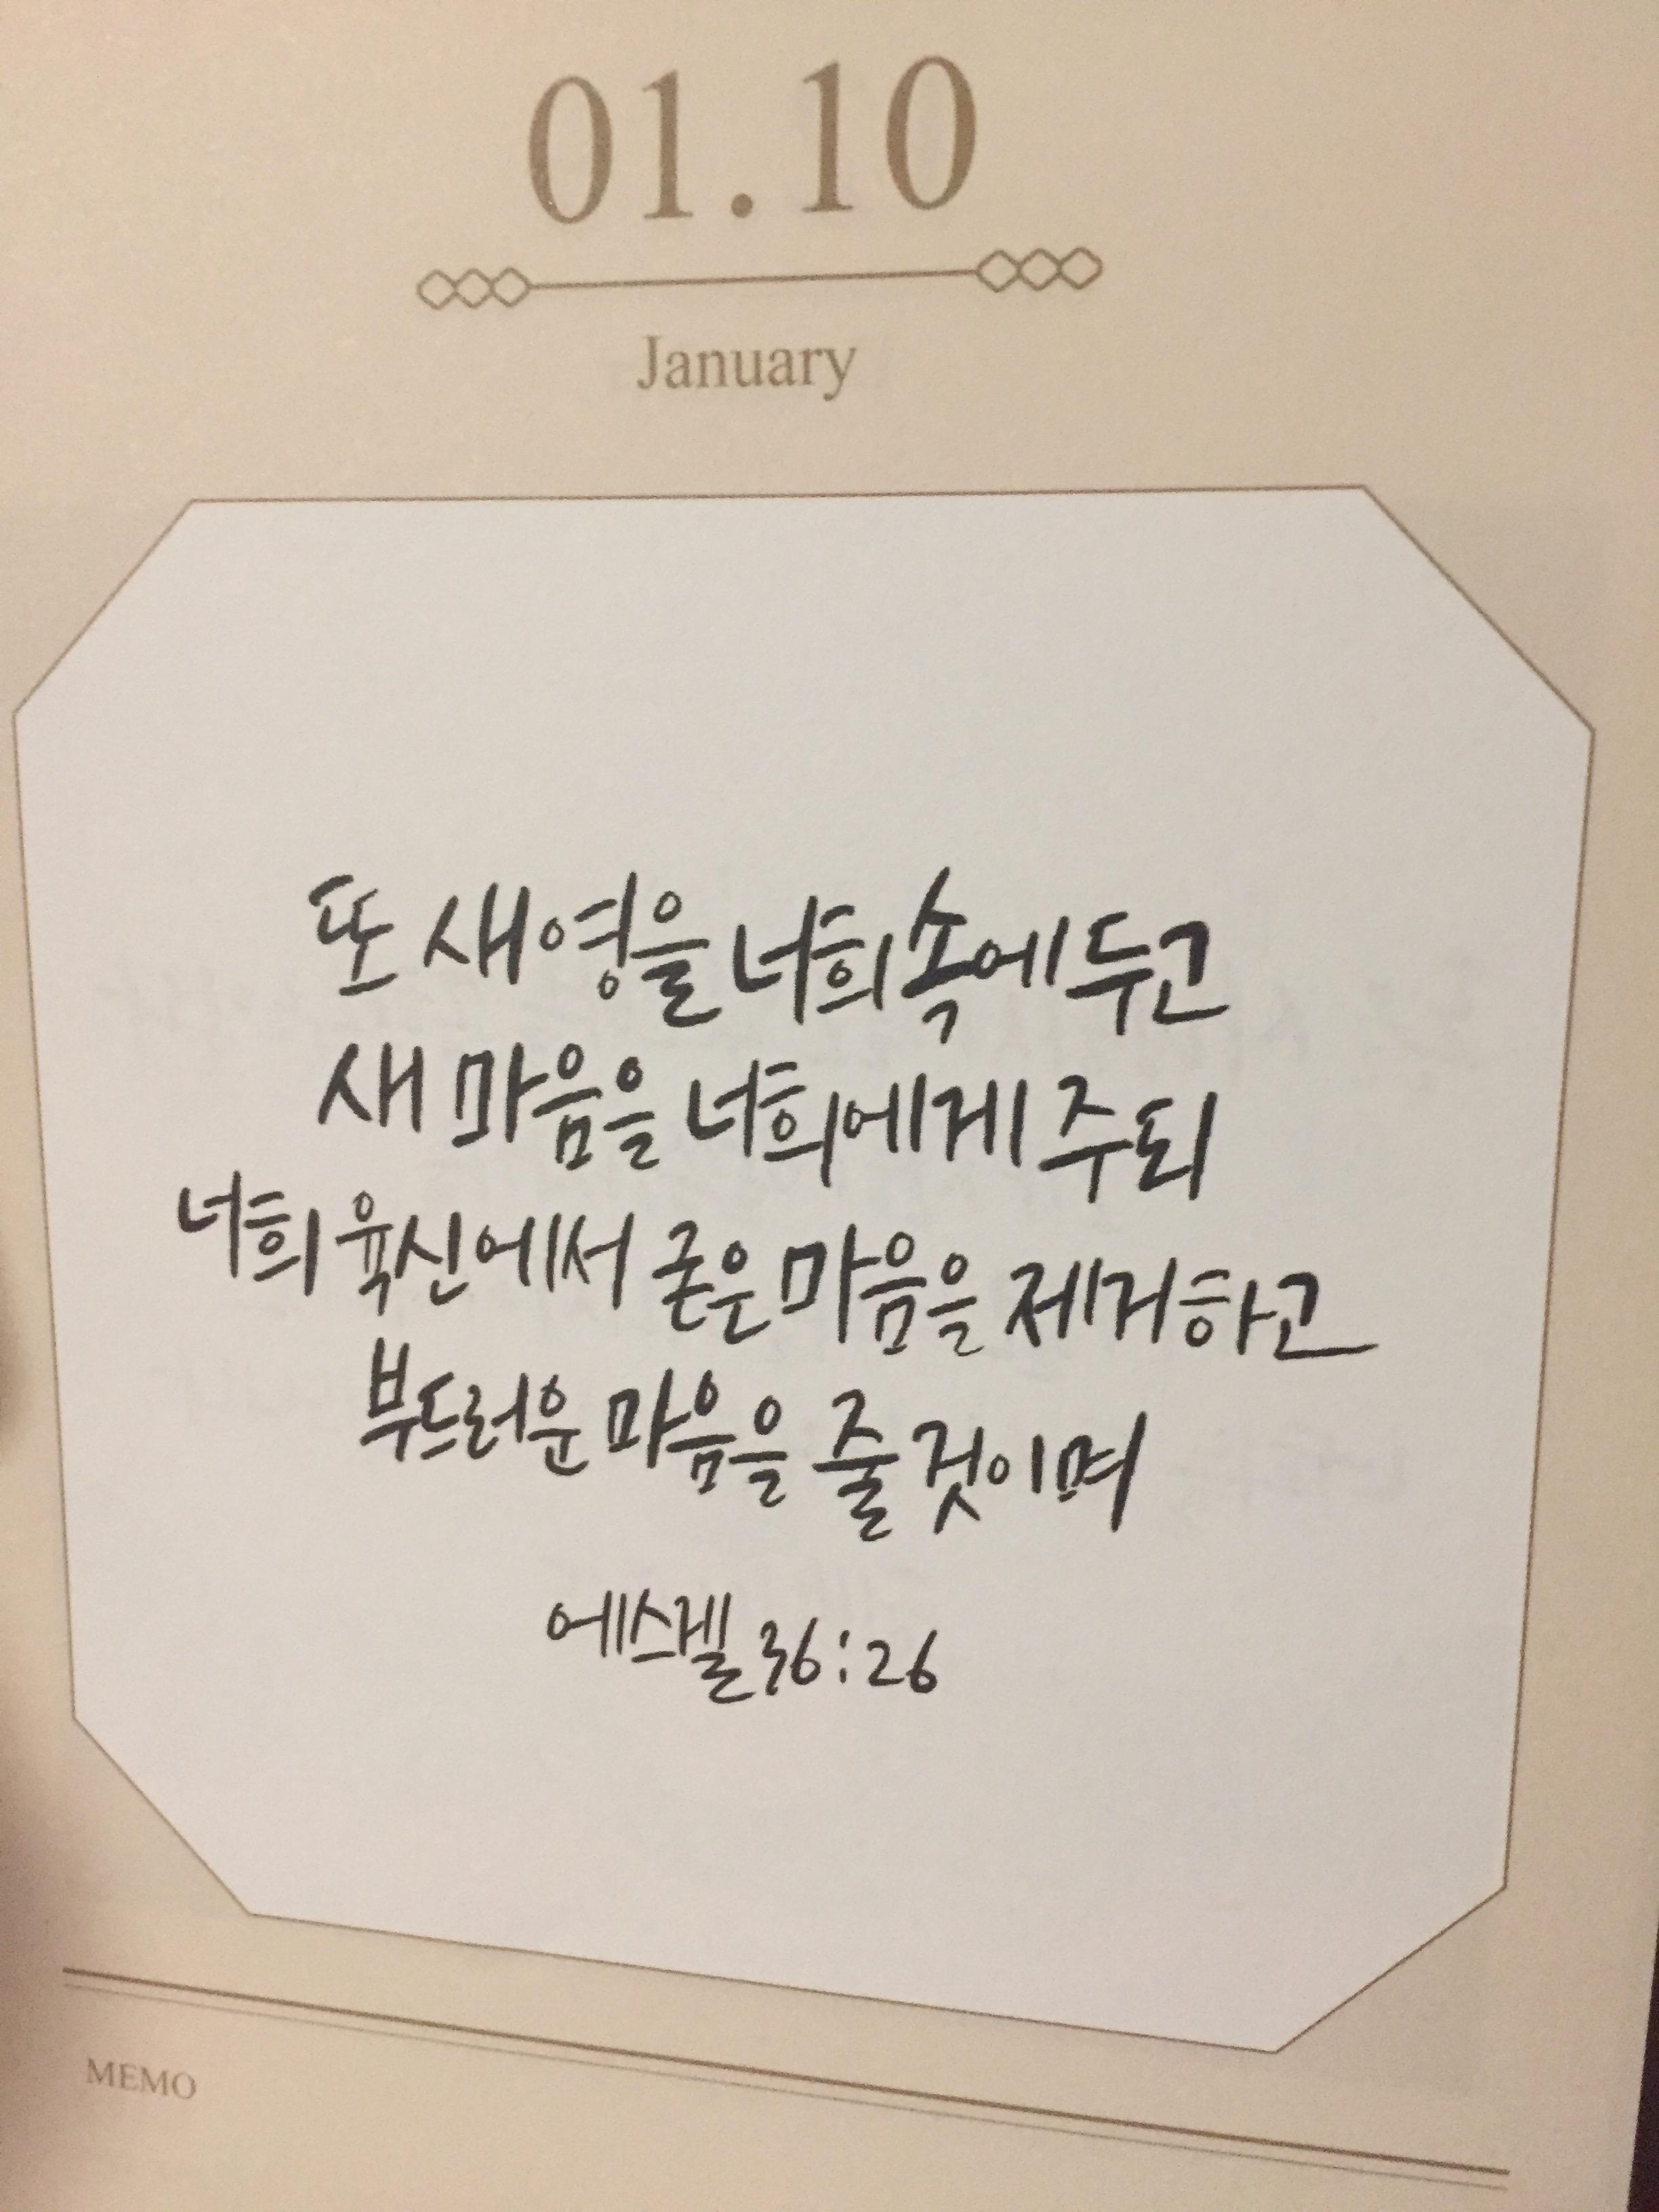 01.10
January
또 새 영을 너희 속에 두고
새 마음을 너희에게 주되
너희 육신에서 굳은 마음을 제거하고
부드러운 마음을 줄 것이며
에스겔 36:26
MEMO